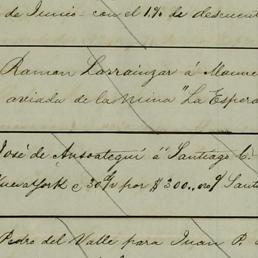 de Junio - con el 1% de descuent
Ramon Larrainzar á Manue
aviada de la mina "La Espera
José de Ansoategui á Santiago C.
Nueva York c 30 d/v por $300.,
Pedro del Valle para Juan P.